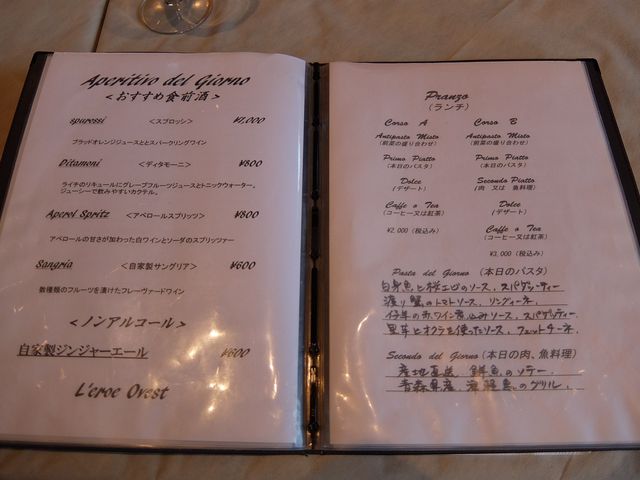 Aperitivo del Giorno
＜おすすめ食前酒＞
spurossi ＜スプロッシ＞ ¥1,000
ブラッドオレンジジュースととスパークリングワイン
Ditamoni ＜ディタモーニ＞ ¥800
ライチのリキュールにグレープフルーツジュースとトニックウォーター。
ジューシーで飲みやすいカクテル。
Aperol Spritz ＜アペロールスプリッツ＞ ¥800
アペロールの甘さが加わった白ワインとソーダのスプリッツァー
Sangria ＜自家製サングリア＞ ¥600
数種類のフルーツを漬けたフレーヴァードワイン
＜ノンアルコール＞
自家製ジンジャーエール ¥600
L'eroe Ovest
Pranzo
（ランチ）
Corso A
Antipasto Misto
（前菜の盛り合わせ）
Primo Piatto
（本日のパスタ）
Dolce
（デザート）
Caffe o Tea
（コーヒー又は紅茶）
¥2,000（税込み）
Corso B
Antipasto Misto
（前菜の盛り合わせ）
Primo Piatto
（本日のパスタ）
Secondo Piatto
（肉 又は 魚料理）
Dolce
（デザート）
Caffe o Tea
（コーヒー又は紅茶）
¥3,000（税込み）
Pasta del Giorno（本日のパスタ）
白身魚と桜エビのソース、スパゲッティー
渡り蟹のトマトソース、リングィーネ
仔羊の赤ワイン煮込みソース、スパゲッティー
里芋とオクラを使ったソース、フェットチーネ
Secondo del Giorno（本日の肉、魚料理）
産地直送 鮮魚のソテー
青森県産 津軽鳥のグリル